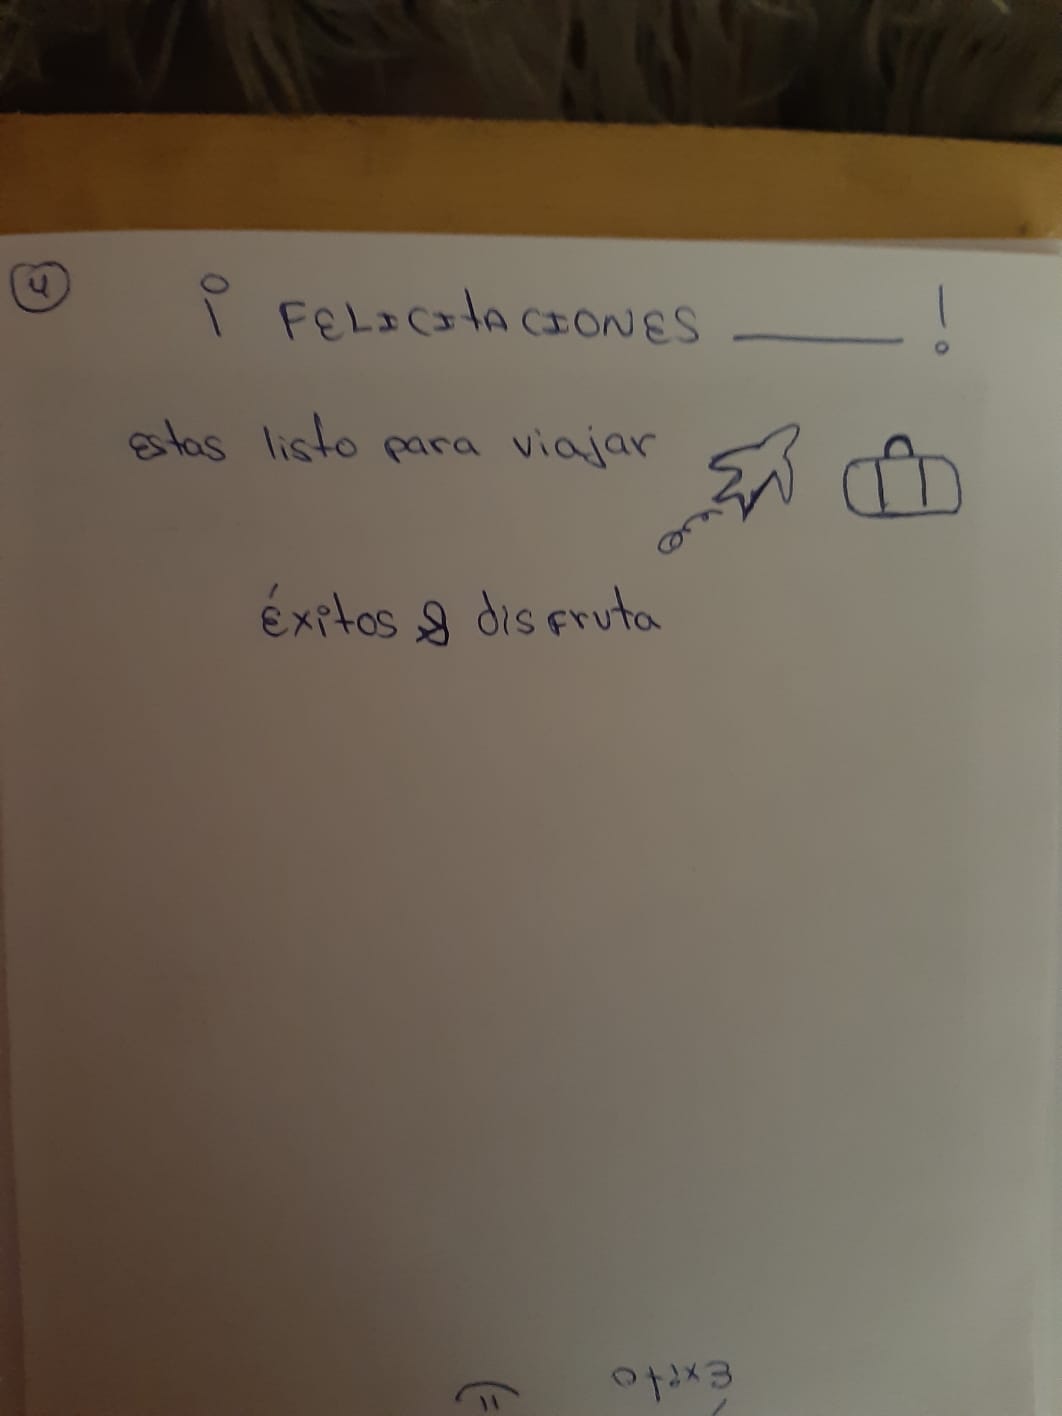 4
¡ FELICITACIONES ____ !
estas listo para viajar
éxitos & disfruta
Éxito